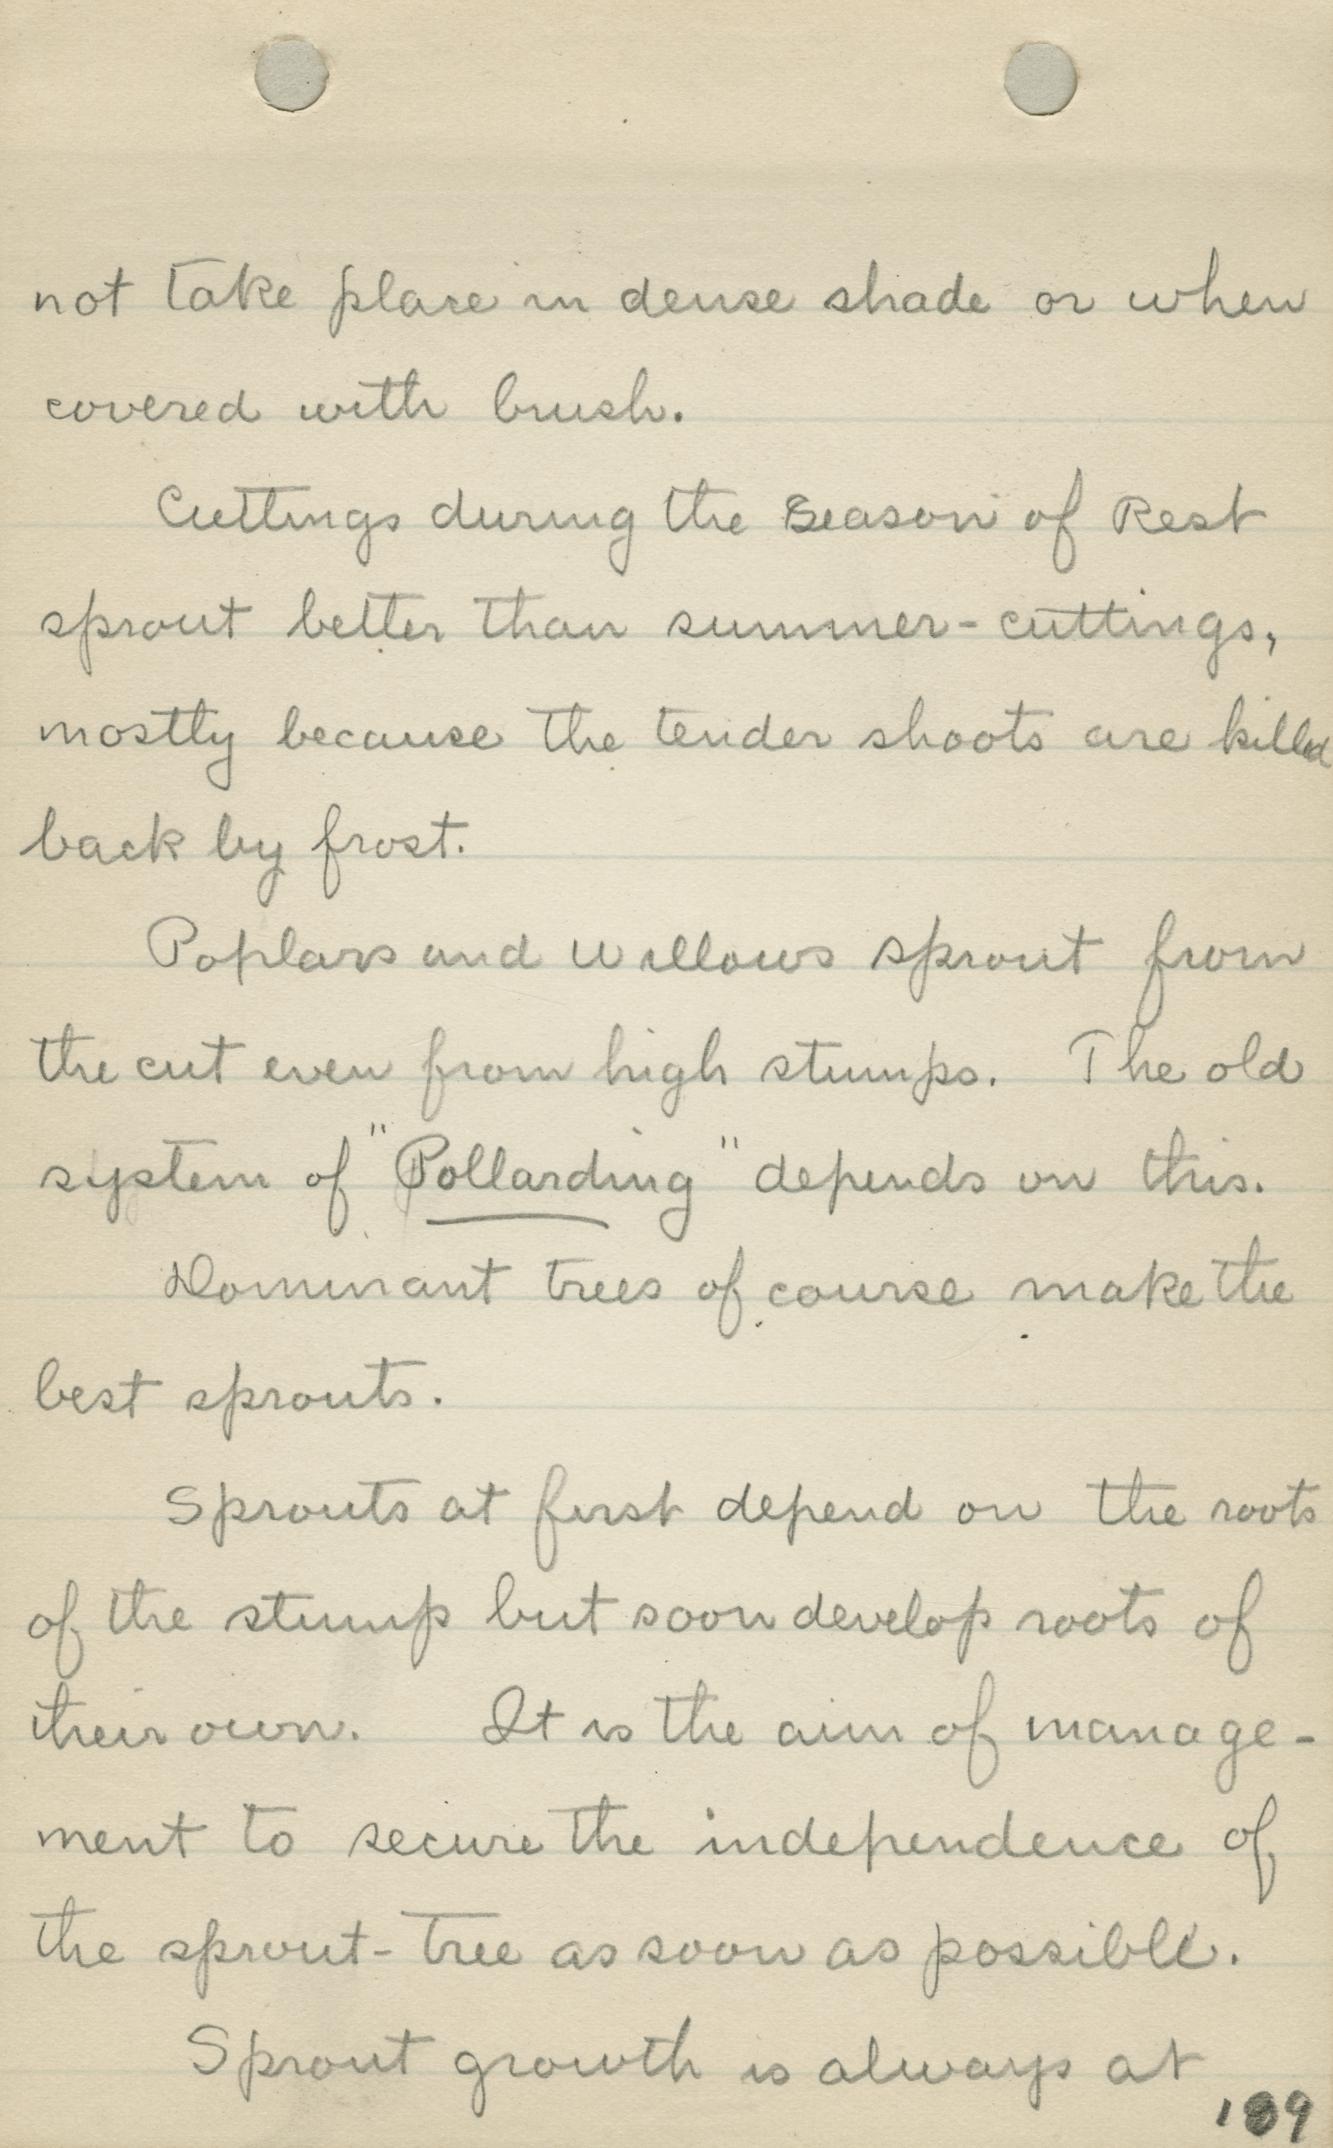 not take place in dense shade or when
covered with brush.
Cuttings during the Season of Rest
sprout better than summer-cuttings,
mostly because the tender shoots are killed
back by frost.
Poplars and Willows sprout from
the cut even from high stumps. The old
system of "Pollarding" depends on this.
Dominant trees of course make the
best sprouts.
Sprouts at first depend on the roots
of the stump but soon develop roots of
their own. It is the aim of manage-
ment to secure the independence of
the sprout-tree as soon as possible.
Sprout growth is always at
189